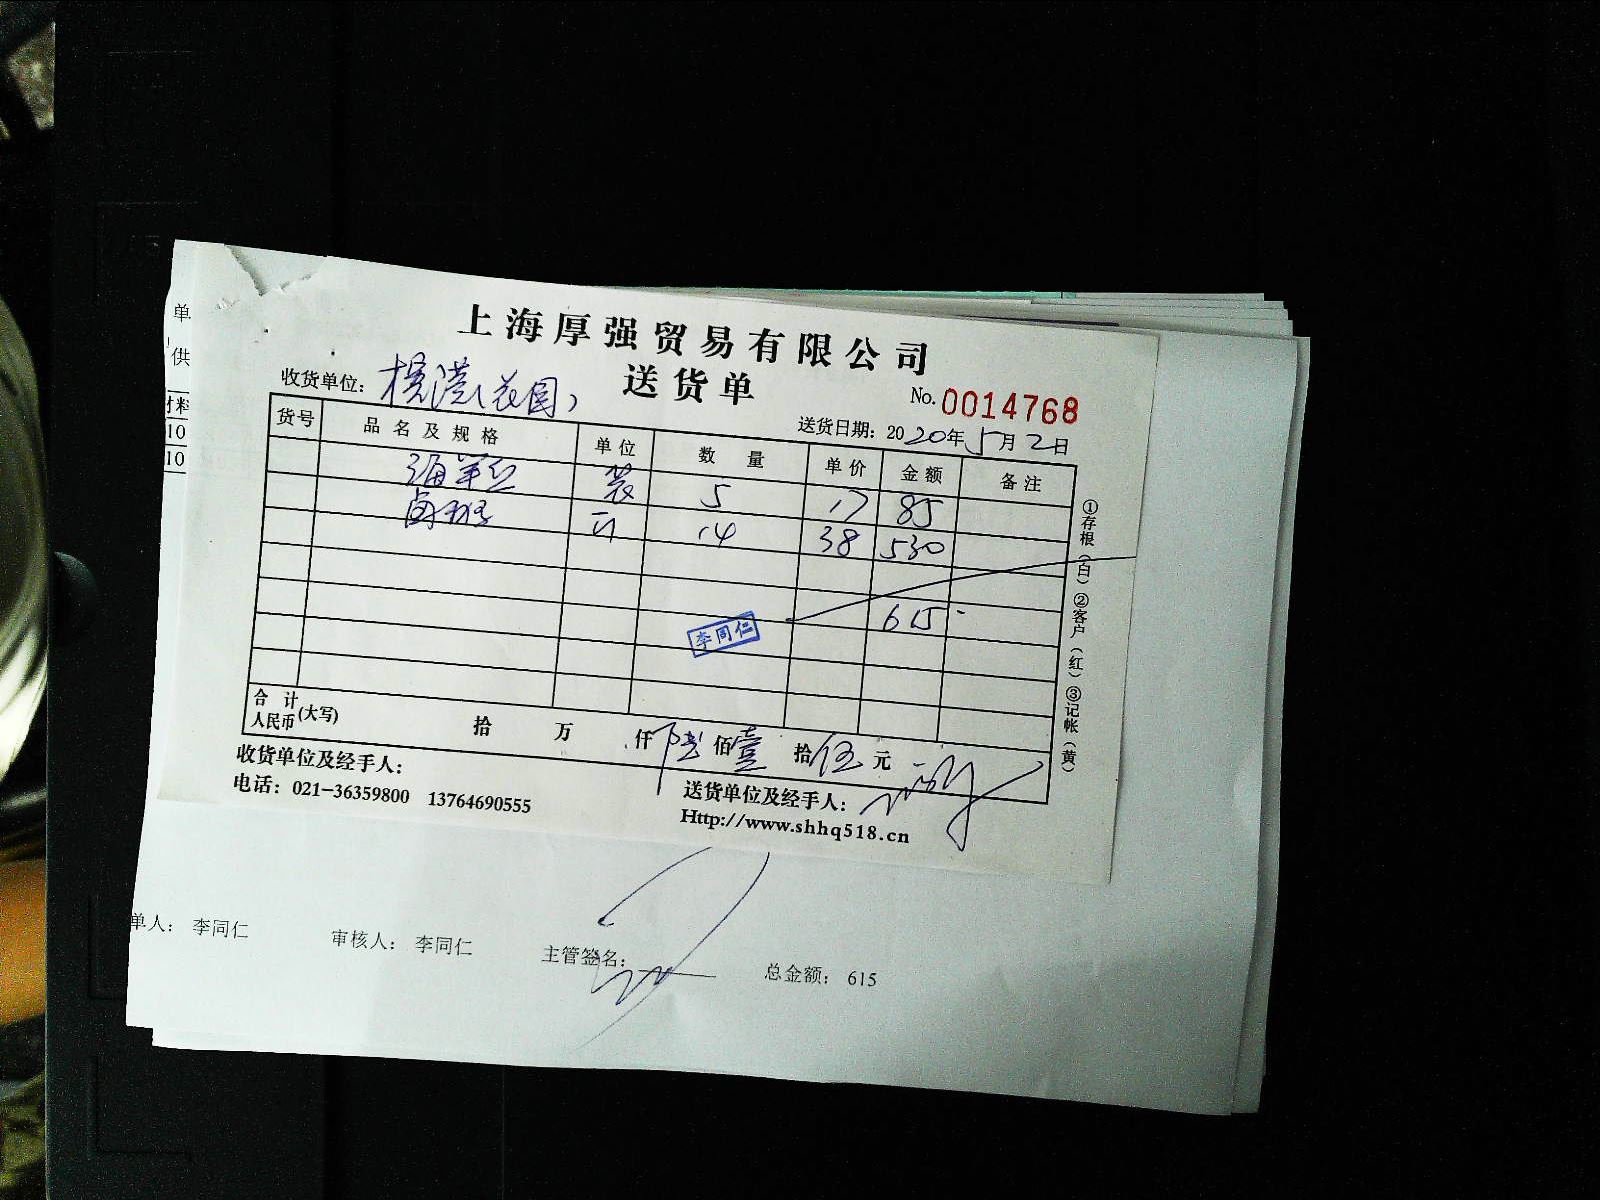 上海厚强贸易有限公司
送货单
收货单位：
No. 0014768
送货日期：2020年5月2日
货号 品名及规格 单位 数量 单价 金额 备注
5 17 85
14 38 530
615
李同仁
合计人民币(大写) 拾 万 仟陆佰壹拾伍元
收货单位及经手人：
送货单位及经手人：
电话：021-36359800 13764690555
Http://www.shhq518.cn
①存根(白)②客户(红)③记帐(黄)
单
供
材料
10
10
单人： 李同仁 审核人： 李同仁 主管签名： 总金额： 615